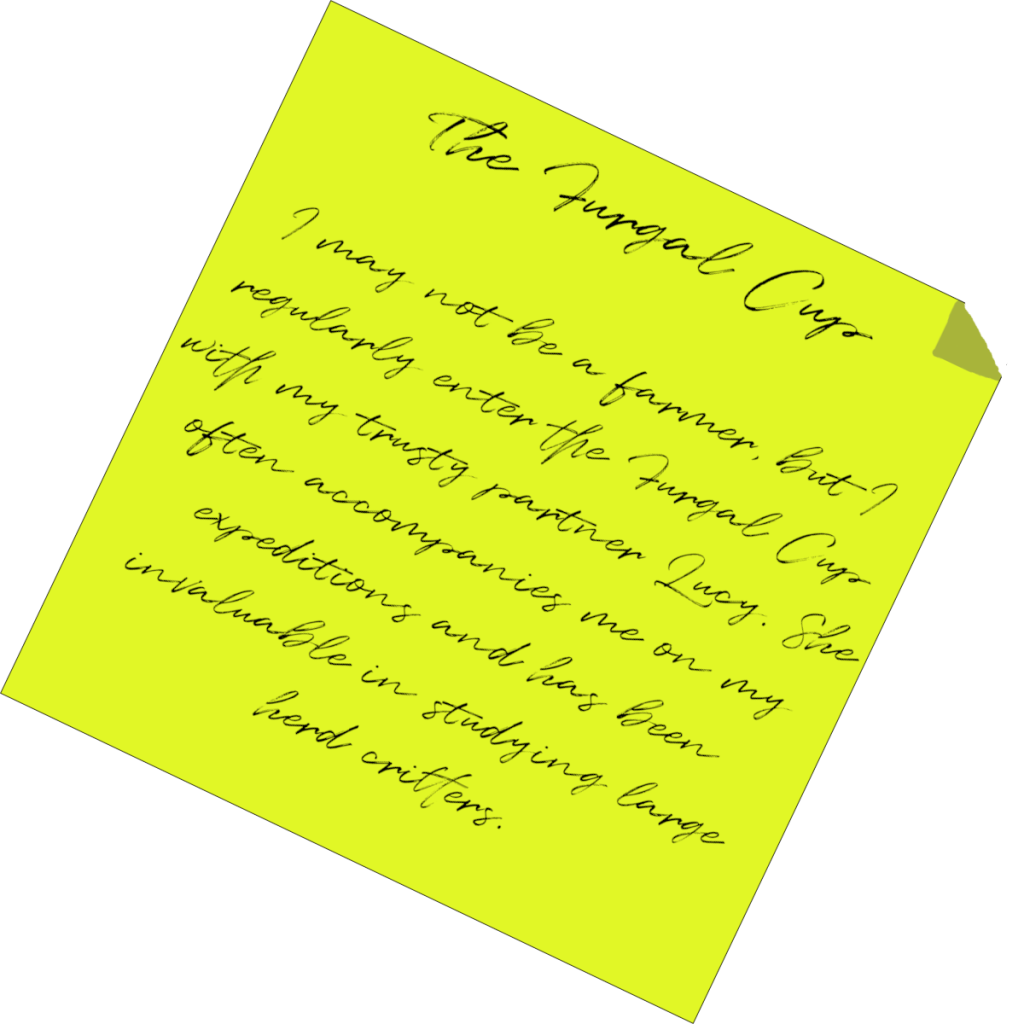 The Furgal Cup
I may not be a farmer, but I
regularly enter the Furgal Cup
with my trusty partner Lucy. She
often accompanies me on my
expeditions and has been
invaluable in studying large
herd critters.